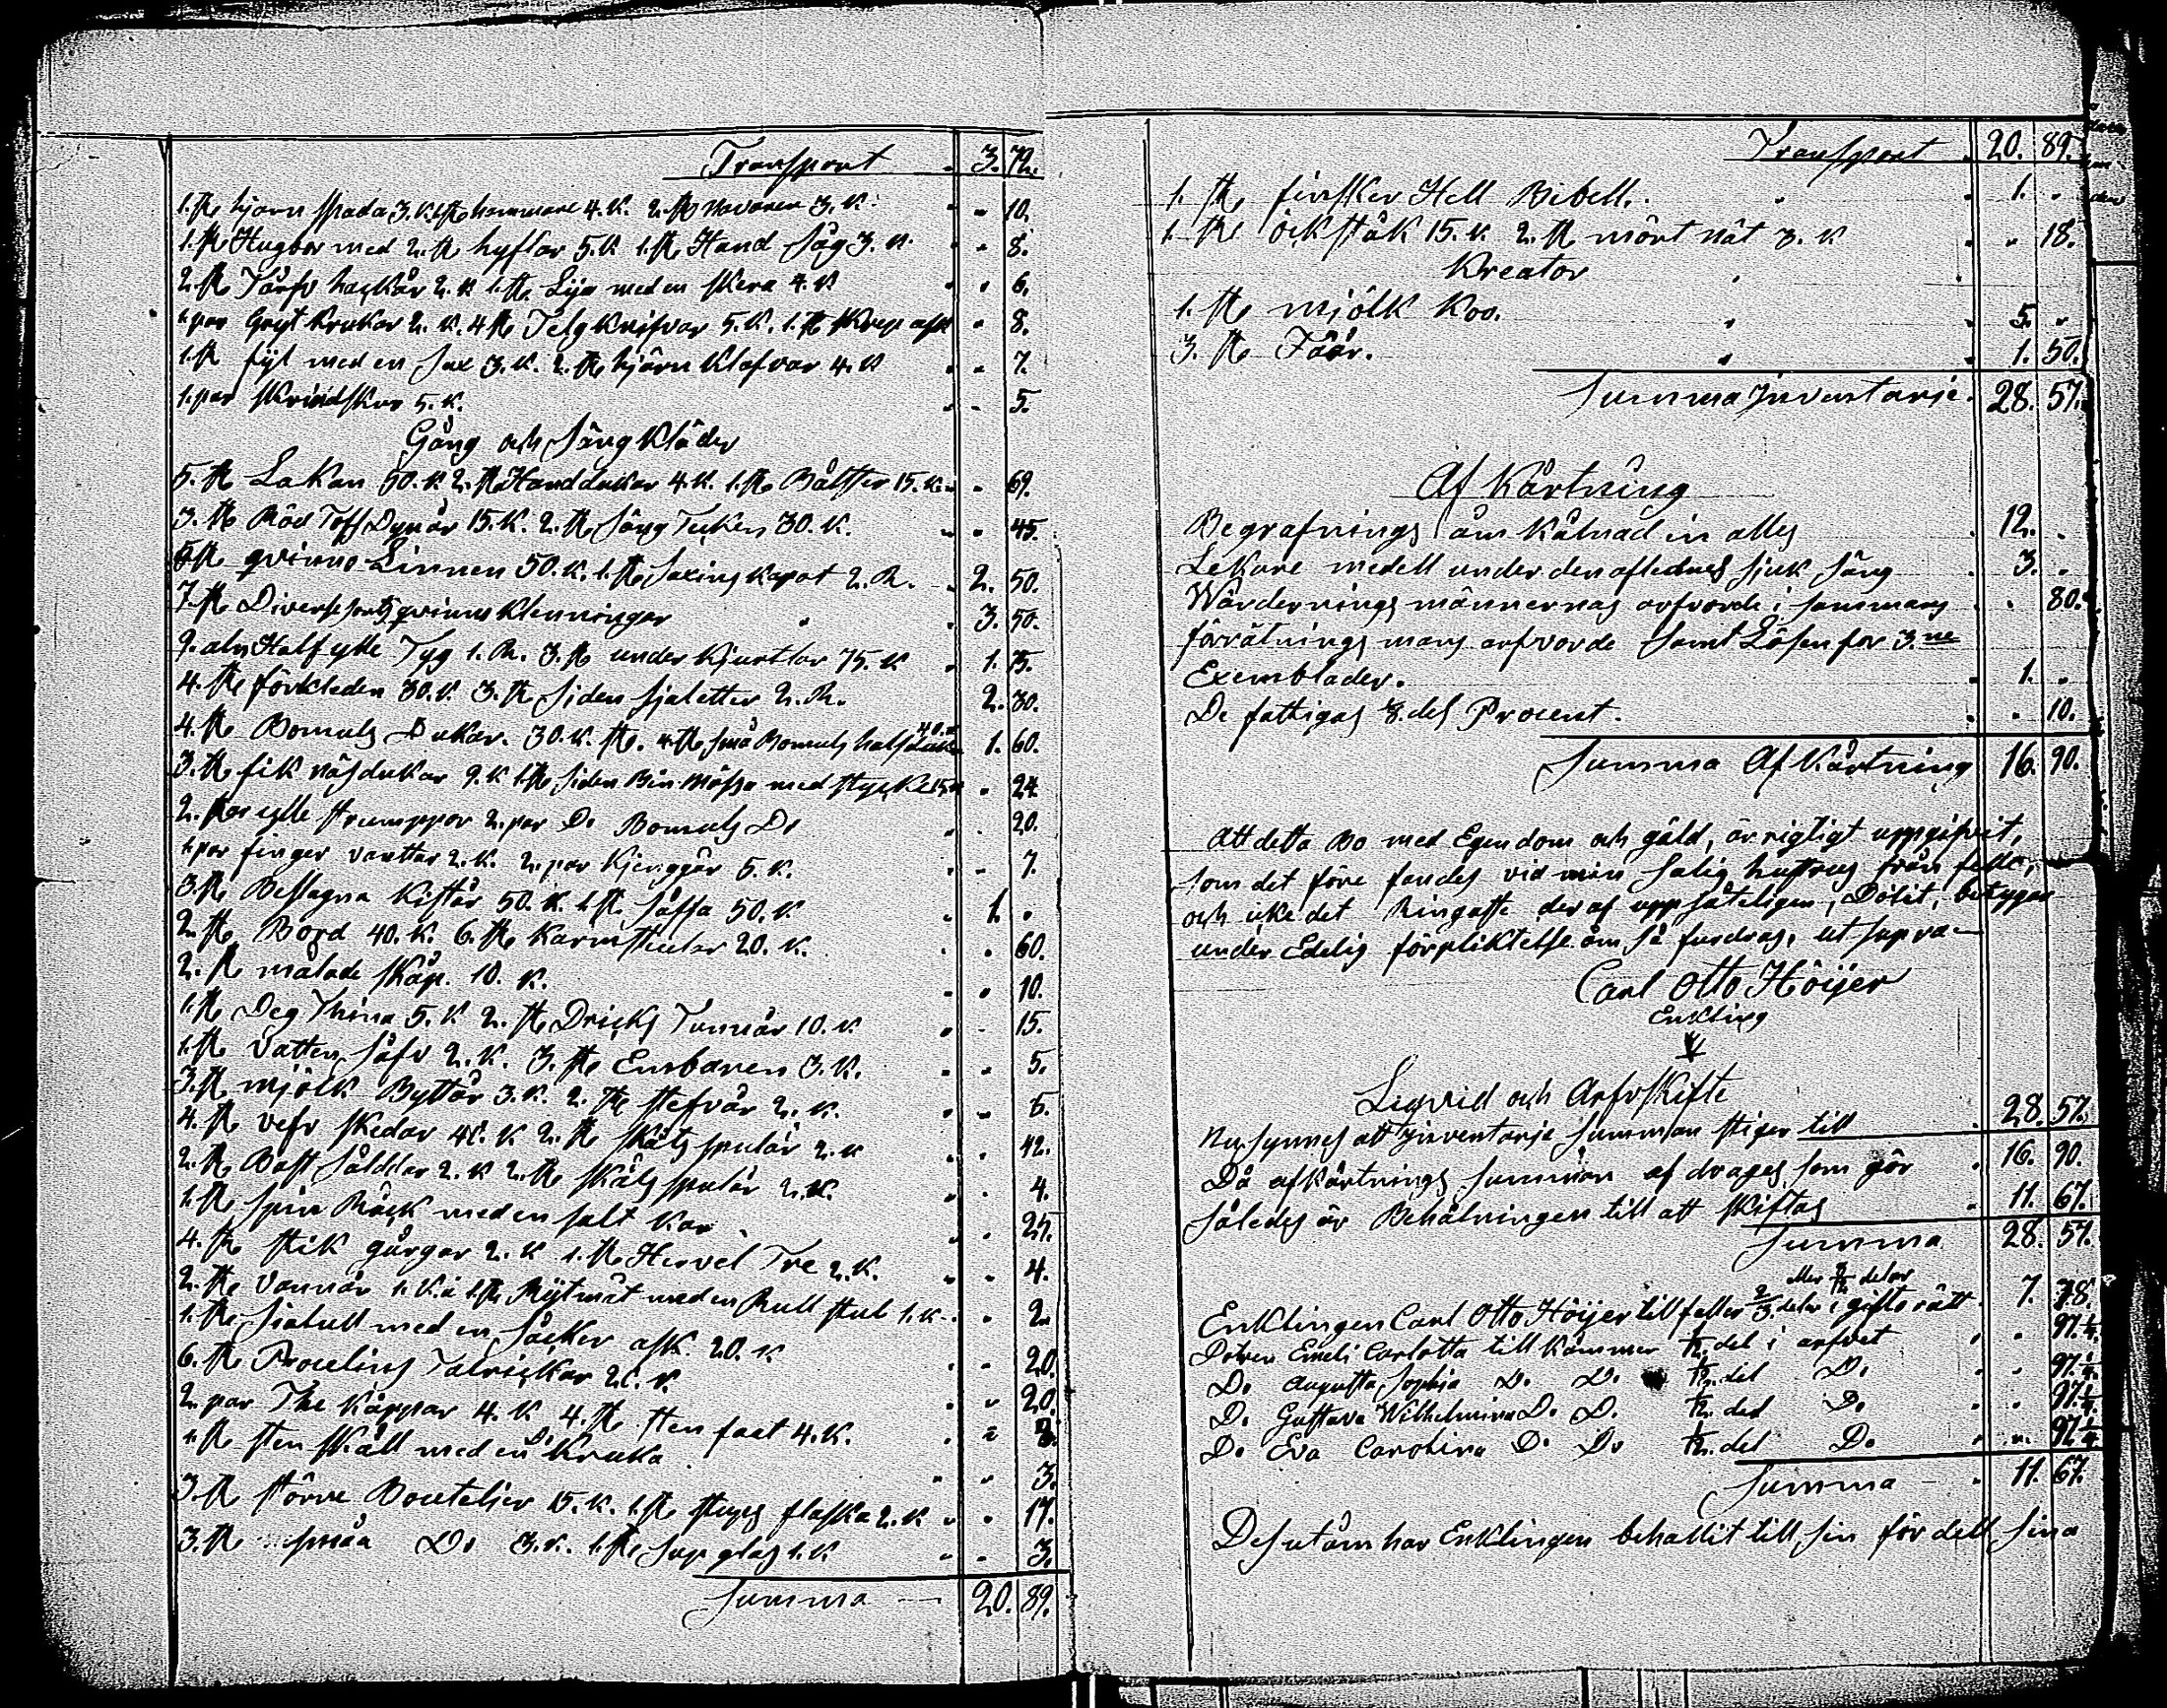 Transport 3. 72.
1. st hjarn spada 3. K. 1 st hammare 4. K. 2. st navaren 3. K. " 10.
1. st Hugbor med 2. st hyflar 5. K 1. st Hand Såg 3. K. " 8.
2. st Tårfv hackår 2. K 1. st Lija med en skera 4. K " 6.
1. par Gryt Krukor 2. K. 4 st Telg Knifvar 5. K. 1. st " 8.
1. st fyl med en sax 3. K. 2. st hjårn Klafvar 4. K " 7.
1. par skrindskor 5. K. " 5.
Gång och sång Kläder
5. st Lakan 50. K. 2. st Handdukar 4. K. 1. st Bålster 15. K. " 69.
3. st Röd Toff Dynår 15. K. 2. st sång Tecken 30. K. " 45.
5 st qvinno Linnen 50. K. 1. st kapot 2. R. 2. 50.
7. st Diverse sorts qvinns Klenningar 3. 50.
9. aln Half ylle Tyg 1. R. 3. st under Kjurtlar 75. K 1. 75.
4. st förkleden 30. K. 3. st siden sjaletter 2. R. 2. 30.
4. st Bomuls Dukar. 30. K. st. 4. st små Bomuls halsduk 40. K 1. 60.
3. st fik näsdukar 9. K 1. st siden Bin-Mössa med stycke 15. K " 24
2. par ylle strumppor 2. par D:o Bomuls D:o " 20.
1. par finger vanttar 2. K. 2. par Kjenggår 5. K. " 7.
3. st Beslagna Kistår 50. K. 1. st såffa 50. K 1. "
2. st Bord 40. K. 6. st Karmstolar 20. K. " 60.
2. st målade skåp. 10. K. " 10.
1. st Deg Thina 5. K 2. st Dricks Tunnår 10. K " 15.
1. st Vatten såfv 2. K. 3. st Embaren 3. K. " 5.
3. st mjölk Byttår 3. K. 2. st stefvår 2. K. " 5.
4. st vefv skedar 40. K 2. st skåts spular 2. K " 42.
2. st Bast sålddar 2. K 2. st skåts spulår 2. K. " 4.
1. st spin Råck med en salt Kar " 25.
4. st stik gårgar 2. K 1. st Hervel Tre 2. K. " 4.
2. st Vannår 1. K. 1. st Rytmåt med en Rull stul 1. K. " 2.
1. st Siatull med en såcker ask. 20. K " 20.
6. st Proselins Talrickar 20. K. " 20.
2. par The Kåppar 4. K 4. st sten faat 4. K. " 8.
1. st sten skåll med en Kruka " 3.
3. st större Bouteljer 15. K. 1. st stups flaska 2. K " 17.
3. st småa D:o 3. K. 1. st sup glas 1. K " 3.
Summa 20. 89.
Transport 20. 89.
1. st finsker Hell Bibell. 1. "
1. st öckståk 15. K. 2. st mört nåt 3. K " 18.
Kreator
1. st mjölk Koo. 5. "
3. st Får. 1. 50.
Summa Jnventarie. 28. 57.
Af Kårtning
Begrafnings åm Kåstnad in alles 12. "
Lekare medell under den aflednes sjuk sång 3. "
Wårdernings männernas arfvorde i sammans " 80.
förrätnings mans arfvorde samt Lösen för 3.ne
Exemblader. 1. "
De fattigas 8. dels Procent. " 10.
Summa Af Kårtning 16. 90.
Att detta Bo med Egendom och gäld, ärrigtigt uppgifvit,
som det före fandes vid min salig hustrus från felle,
och icke det Ringaste deraf uppsåteligen, Dolit, betygar
under Edelig förpliktelse åm så fordras, ut supra
Carl Otto Höijer
Enkling
Liqvid och Arfvskifte
Nu synnes att Jnventarie summan stiger till 28. 57.
Då afkårtnings summan af drages som gör 16. 90.
således är Behålningen till att skiftas 11. 67.
Summa 28. 57.
eller 8/12 delar
Enklingen Carl Otto Höijer tillfaller 2/3. delar i gifto rätt 7. 78.
Dotren Emeli Carlotta till Kåmmer 1/12. del i arfvet " 97 1/4.
D:o Augusta Sophia D:o D:o 1/12. del D:o " 97 1/4.
D:o Gustava Wilhelmina D:o D:o 1/12. del D:o " 97 1/4.
D:o Eva Carolina D:o D:o 1/12. del D:o " 97 1/4.
Summa 11. 67.
Desutåm har Enklingen behallit till sin för dell sina